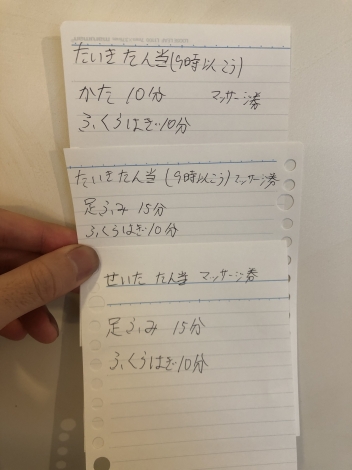 たいき たん当(9時以こう)
かた 10分 マッサージ券
ふくらはぎ10分
たいき たん当 (9時以こう) マッサージ券
足ふみ 15分
ふくらはぎ10分
せいた たん当 マッサージ券
足ふみ 15分
ふくらはぎ10分